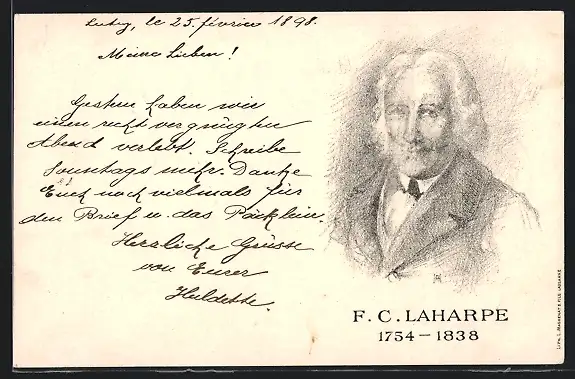 Lutry, le 25. février 1898.
Meine Lieben!
Gestern haben wir
einen recht vergnügten
Abend verlebt. Schreibe
Sonntags mehr. Danke
Euch noch vielmals für
den Brief u. das Päcklein.
Herzliche Grüsse
von Eurer
F. C. LAHARPE
1754 – 1838